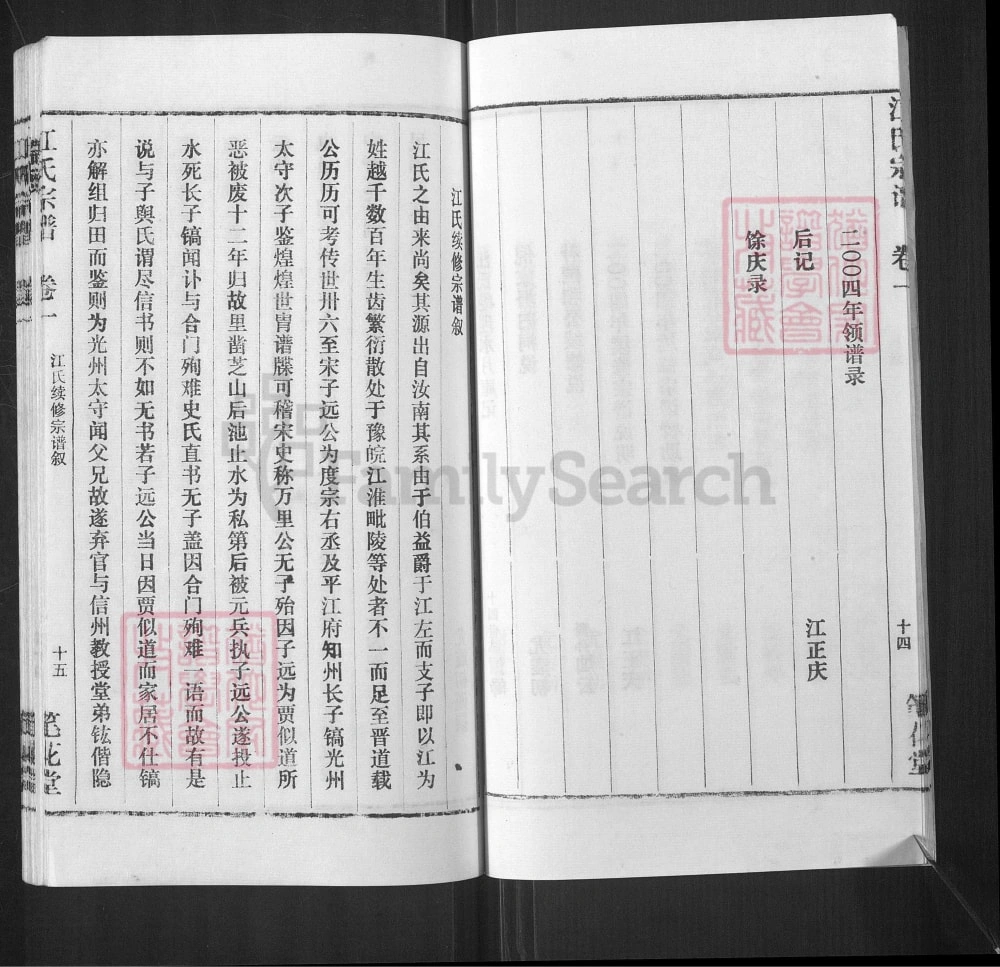 江氏宗谱 卷一
二〇〇四年领谱录
后记 江正庆
馀庆录
十四
笔花堂
江氏续修宗谱叙
江氏之由来尚矣其源出自汝南其系由于伯益爵于江左而支子即以江为
姓越千数百年生齿繁衍散处于豫皖江淮毗陵等处者不一而足至晋道载
公历历可考传世卅六至宋子远公为度宗右丞及平江府知州长子镐光州
太守次子鉴煌煌世胄谱牒可稽宋史称万里公无子殆因子远为贾似道所
恶被废十二年归故里凿芝山后池止水为私第后被元兵执子远公遂投止
水死长子镐闻讣与合门殉难史氏直书无子盖因合门殉难一语而故有是
说与子舆氏谓尽信书则不如无书若子远公当日因贾似道而家居不仕镐
亦解组归田而鉴则为光州太守闻父兄故遂弃官与信州教授堂弟铉偕隐
江氏宗谱 卷一
江氏续修宗谱叙
十五
笔花堂
FamilySearch